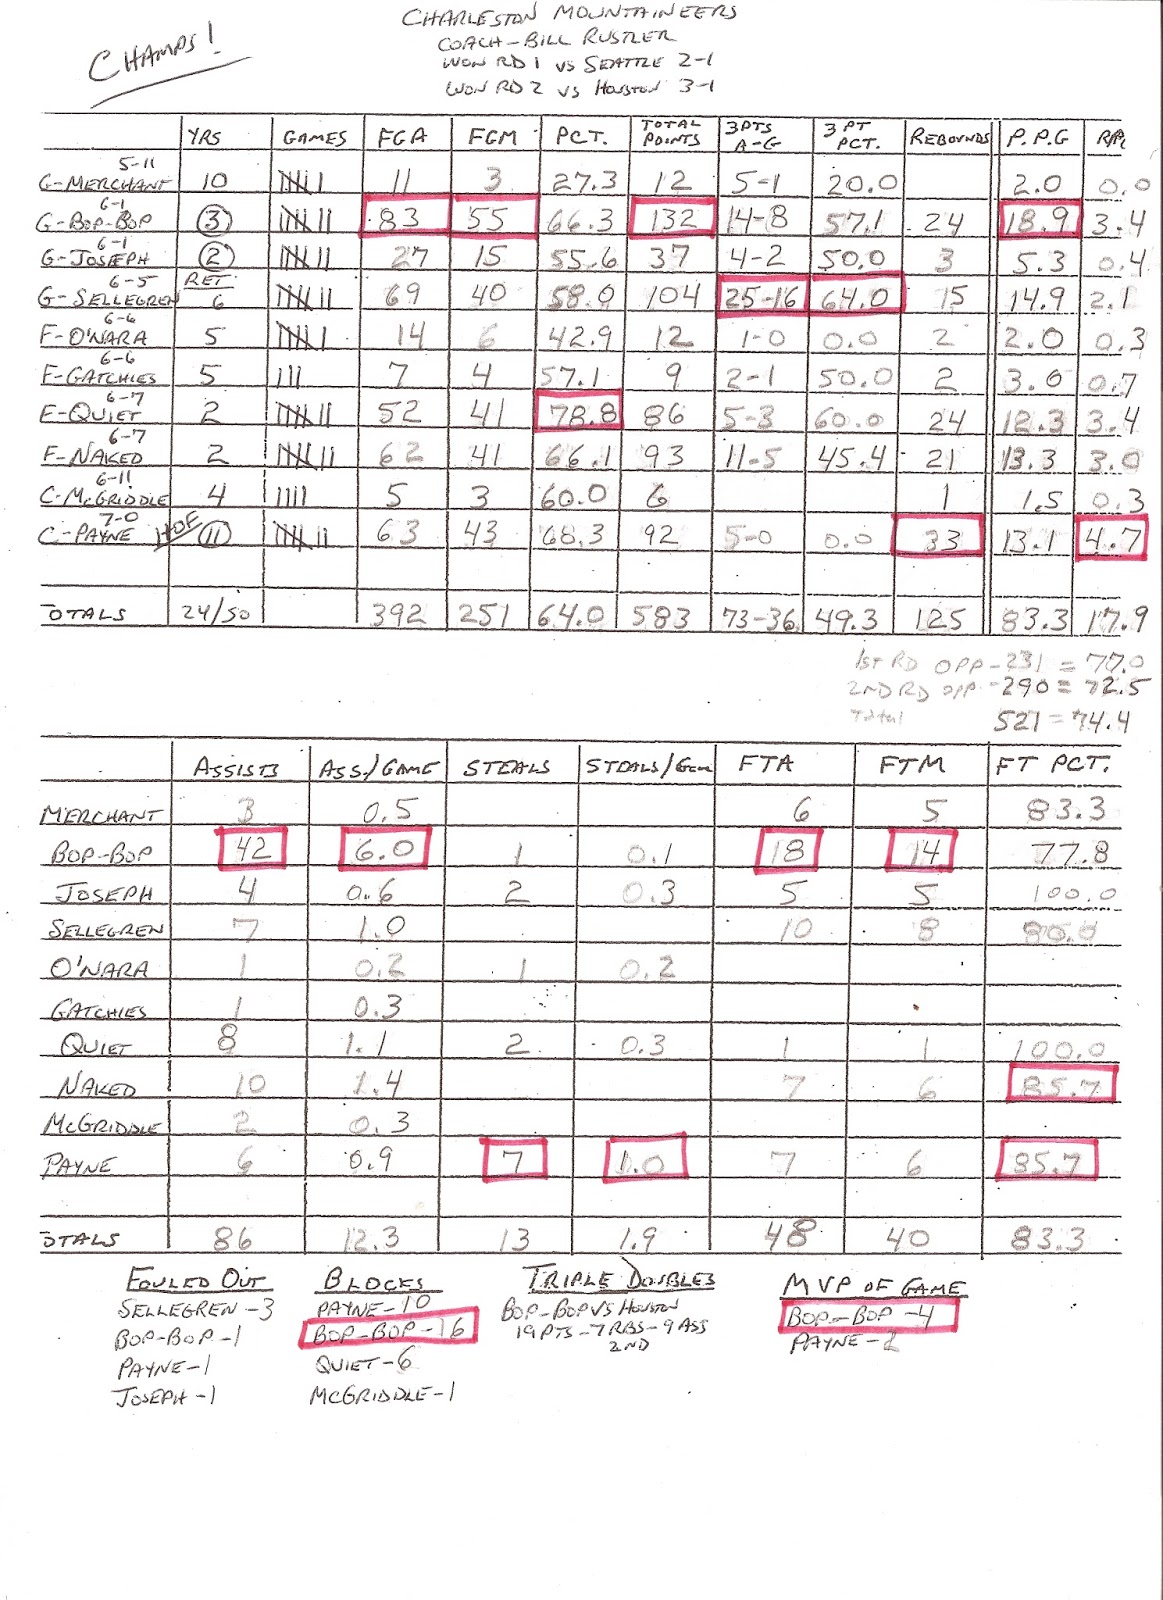 CHARLESTON MOUNTAINEERS
CHAMPS!
COACH-BILL RUSTLER
WON RD 1 VS SEATTLE 2-1
WON RD 2 VS HOUSTON 3-1
YRS GAMES FGA FGM PCT. TOTAL POINTS 3PTS A-G 3 PT PCT. REBOUNDS P.P.G
5-11
G-MERCHANT 10 11 3 27.3 12 5-1 20.0 2.0 0.0
6-1
G-BOP-BOP 3 83 55 66.3 132 14-8 57.1 24 18.9 3.4
6-1
G-JOSEPH 2 27 15 55.6 37 4-2 50.0 3 5.3 0.4
6-5 RET
G-SELLEGREN 6 69 40 58.0 104 25-16 64.0 15 14.9 2.1
6-6
F-O'NARA 5 14 6 42.9 12 1-0 0.0 2 2.0 0.3
6-6
F-GATCHIES 5 7 4 57.1 9 2-1 50.0 2 3.0 0.7
6-7
F-QUIET 2 52 41 78.8 86 5-3 60.0 24 12.3 3.4
6-7
F-NAKED 2 62 41 66.1 93 11-5 45.4 21 13.3 3.0
6-11
C-MCGRIDDLE 4 5 3 60.0 6 1 1.5 0.3
7-0
C-PAYNE HOF 11 63 43 68.3 92 5-0 0.0 33 13.1 4.7
OTALS 24/50 392 251 64.0 583 73-36 49.3 125 83.3 17.9
1ST RD OPP-231 = 77.0
2ND RD OPP-290 = 72.5
Total 521 = 74.4
ASSISTS ASS./GAME STEALS STEALS/GAM FTA FTM FT PCT.
MERCHANT 3 0.5 6 5 83.3
BOP-BOP 42 6.0 1 0.1 18 14 77.8
JOSEPH 4 0.6 2 0.3 5 5 100.0
SELLEGREN 7 1.0 10 8 80.0
O'NARA 1 0.2 1 0.2
GATCHIES 1 0.3
QUIET 8 1.1 2 0.3 1 1 100.0
NAKED 10 1.4 7 6 85.7
MCGRIDDLE 2 0.3
PAYNE 6 0.9 7 1.0 7 6 85.7
OTALS 86 12.3 13 1.9 48 40 83.3
FOULED OUT BLOCKS TRIPLE DOUBLES MVP OF GAME
SELLEGREN-3 PAYNE-10 BOP-BOP VS HOUSTON BOP-BOP-4
BOP-BOP-1 BOP-BOP-16 19 PTS-7 RBS-9 ASS PAYNE-
2ND
PAYNE-1 QUIET-6
JOSEPH-1 MCGRIDDLE-1